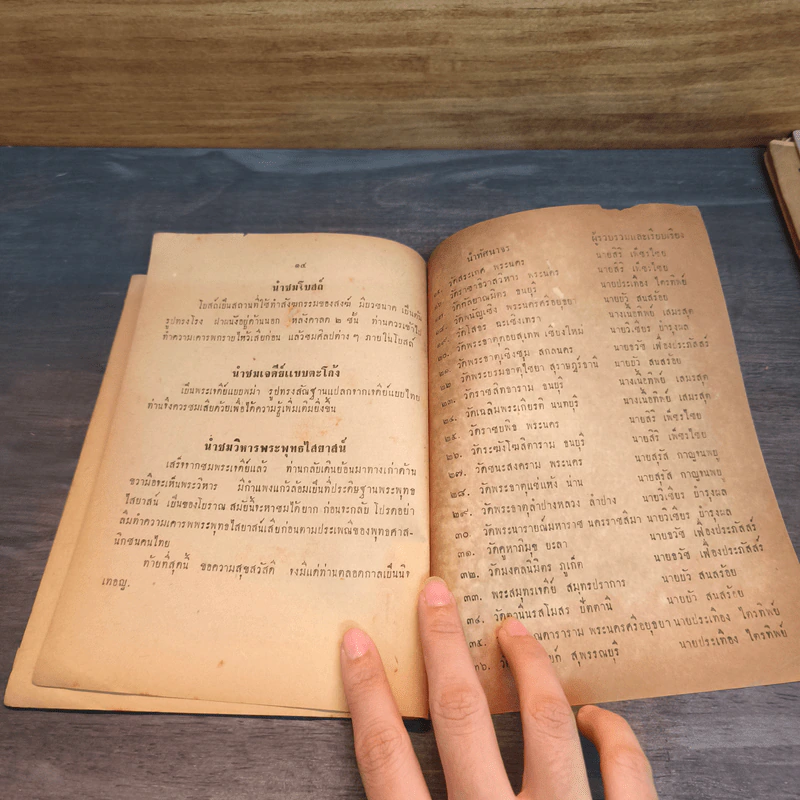 ๑๔
นำชมโบสถ์
โบสถ์เป็นสถานที่ใช้ทำสังฆกรรมของสงฆ์ มีขนาด
รูปทรงโรง หลังคาลด ๒ ชั้น ท่านควรเข้าไป
ทำความเคารพกราบไหว้เสียก่อน แล้วชมศิลปต่าง ๆ ภายในโบสถ์
นำชมเจดีย์แบบตะโก้ง
เป็นพระเจดีย์แบบพม่า รูปทรงสัณฐานแปลกจากเจดีย์แบบไทย
ท่านจึงควรชมเสียด้วยเพื่อให้ความรู้เพิ่มเติมยิ่งขึ้น
นำชมวิหารพระพุทธไสยาสน์
เสร็จจากชมพระเจดีย์แล้ว ท่านกลับเดินย้อนมาทางเก่าด้าน
ขวามือจะเห็นพระวิหาร มีกำแพงแก้วล้อมเป็นที่ประดิษฐานพระพุทธ
ไสยาสน์ เป็นของโบราณ สมัยนี้จะหาชมได้ยาก ก่อนจะกลับ โปรดอย่า
ลืมทำความเคารพพระพุทธไสยาสน์เสียก่อนตามประเพณีของพุทธศาส-
นิกชนคนไทย
ท้ายที่สุดนี้ ขอความสุขสวัสดิ จงมีแด่ท่านตลอดกาลเป็นนิจ
เทอญ.
นำทัศนาจร ผู้รวบรวมและเรียบเรียง
วัดสระเกศ พระนคร นายสิริ เพ็ชรไชย
วัดราชาธิวาสวิหาร พระนคร นายสิริ เพ็ชรไชย
วัดกัลยาณมิตร ธนบุรี นายประเทือง ไตรทิพย์
วัดพนัญเชิง พระนครศรีอยุธยา นายยัว สนสร้อย
วัดโสธร ฉะเชิงเทรา นางเนื้อทิพย์ เสมรสุต
วัดพระธาตุดอยสุเทพ เชียงใหม่ นายวิเชียร บำรุงผล
วัดพระธาตุเชิงชุม สกลนคร นายธวัช เฟื่องประภัสสร์
วัดพระบรมธาตุไชยา สุราษฎร์ธานี นายยัว สนสร้อย
วัดราชสิทธาราม ธนบุรี นางเนื้อทิพย์ เสมรสุต
๒๔. วัดเฉลิมพระเกียรติ นนทบุรี นางเนื้อทิพย์ เสมรสุต
๒๕. วัดราชบพิธ พระนคร นายสิริ เพ็ชรไชย
๒๖. วัดระฆังโฆสิตาราม ธนบุรี นายสิริ เพ็ชรไชย
๒๗. วัดชนะสงคราม พระนคร นายสุรัส กาญจนพยุ
๒๘. วัดพระธาตุแช่แห้ง น่าน นายสุรัส กาญจนพยุ
๒๙. วัดพระธาตุลำปางหลวง ลำปาง นายวิเชียร บำรุงผล
๓๐ วัดพระนารายณ์มหาราช นครราชสีมา นายวิเชียร บำรุงผล
๓๑. วัดคูหาภิมุข ยะลา นายธวัช เฟื่องประภัสสร์
๓๒. วัดมงคลนิมิตร ภูเก็ต นายธวัช เฟื่องประภัสสร์
๓๓. พระสมุทรเจดีย์ สมุทรปราการ นายยัว สนสร้อย
๓๔. วัดตานีนรสโมสร ปัตตานี นายยัว สนสร้อย
๓๕. ณดาราราม พระนครศรีอยุธยา นายประเทือง ไตรทิพย์
๓๖. วัด สุพรรณบุรี นายประเทือง ไตรทิพย์